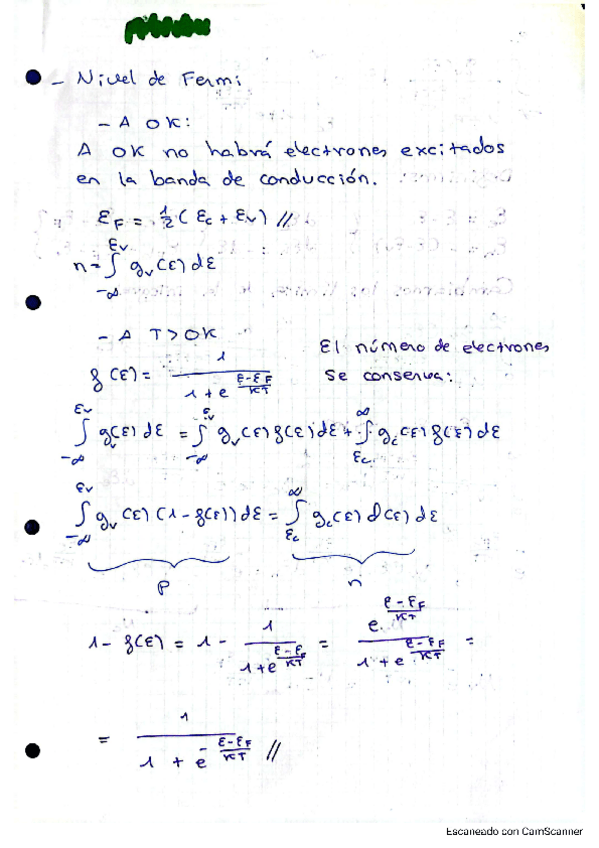 - Nivel de Fermi
- A 0K:
A 0K no habrá electrones excitados
en la banda de conducción.
εF = 1/2 (εc + εv) //
n = ∫_{-∞}^{εv} gv(ε) dε
- A T > 0K
El número de electrones
se conserva:
f(ε) = 1 / (1 + e^{(ε-εF)/KT})
∫_{-∞}^{εv} gv(ε) dε = ∫_{-∞}^{εv} gv(ε) f(ε) dε + ∫_{εc}^{∞} gc(ε) f(ε) dε
∫_{-∞}^{εv} gv(ε) (1 - f(ε)) dε = ∫_{εc}^{∞} gc(ε) f(ε) dε
p n
1 - f(ε) = 1 - 1 / (1 + e^{(ε-εF)/KT}) = e^{(ε-εF)/KT} / (1 + e^{(ε-εF)/KT}) =
= 1 / (1 + e^{-(ε-εF)/KT}) //
Escaneado con CamScanner